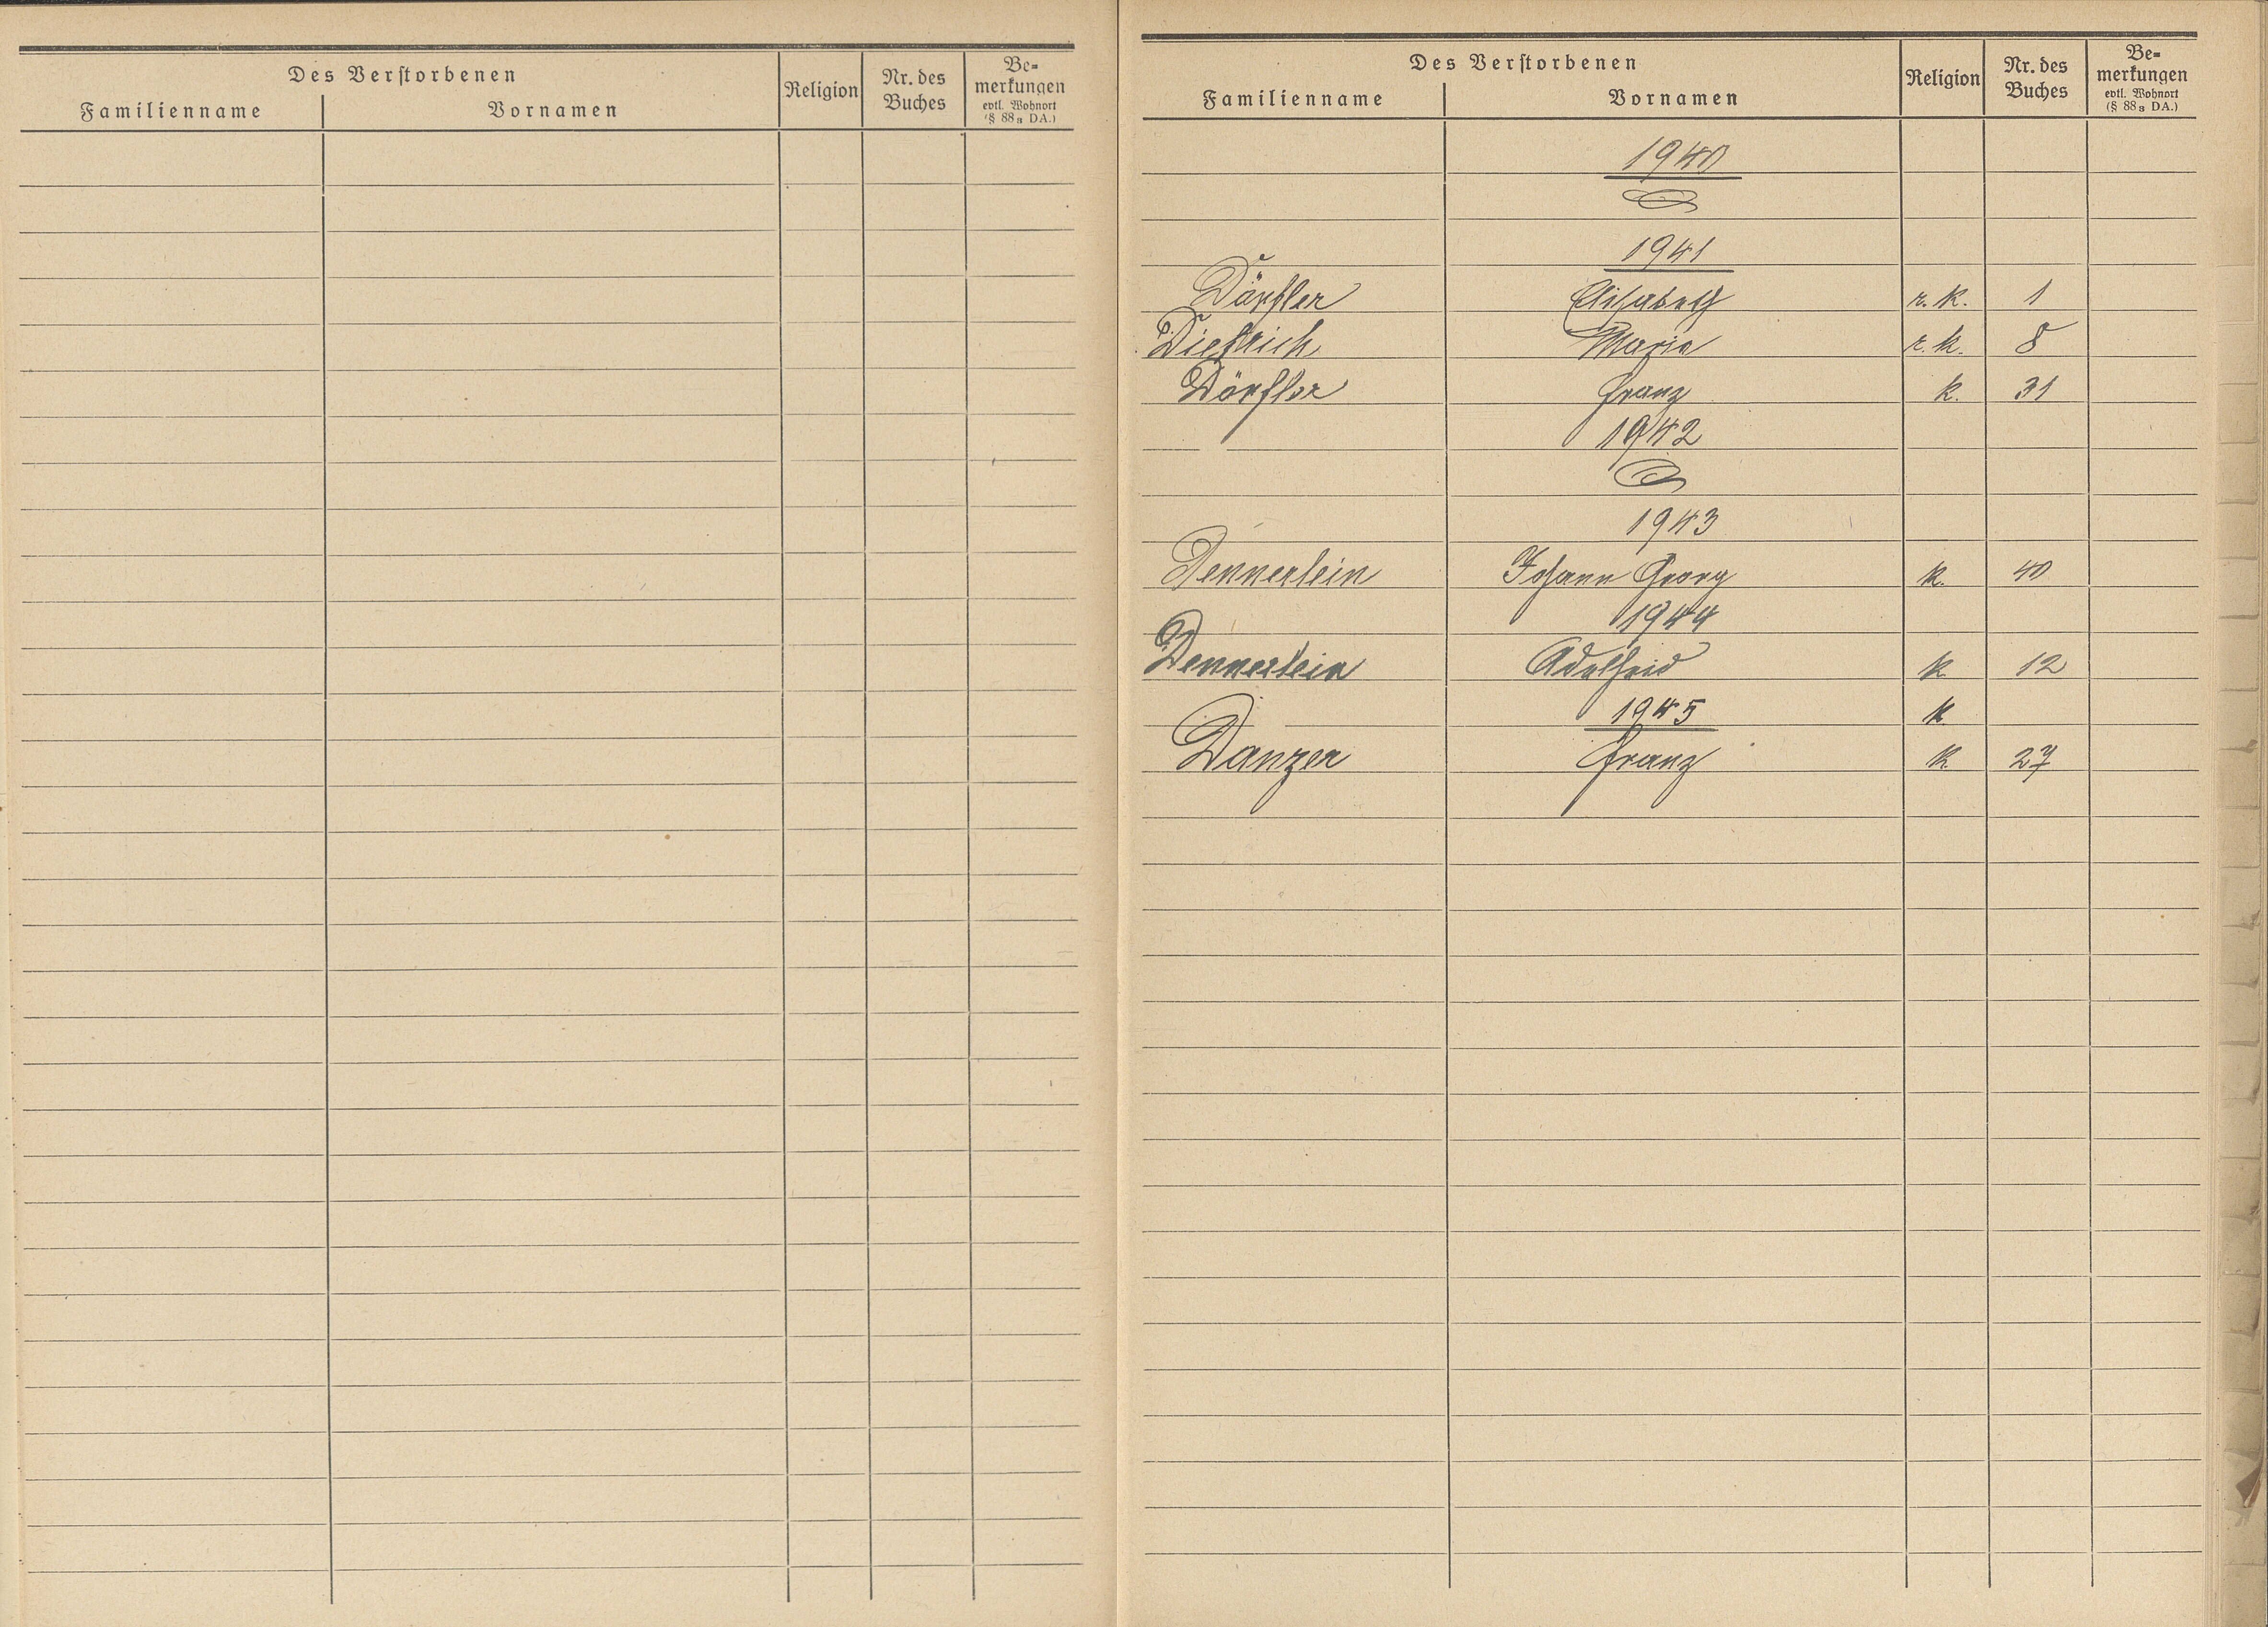 Des Verstorbenen
Familienname Vornamen Religion Nr. des Buches Be=merkungen evtl. Wohnort (§ 88 a DA.)
Des Verstorbenen
Familienname Vornamen Religion Nr. des Buches Be=merkungen evtl. Wohnort (§ 88 a DA.)
1940
1941
Dörfler Elisabeth r. k. 1
Dietrich Maria r. k. 8
Dörfler Franz k. 31
1942
1943
Dennerlein Johann Georg k. 40
1944
Dennerlein Adelheid k 12
1945 k
Danzer Franz k. 27